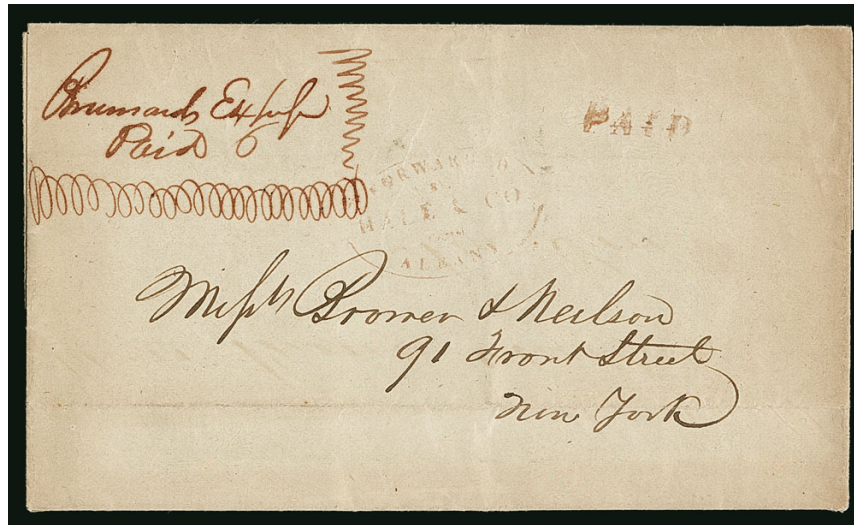 Paid 6
PAID
FORWARDED
BY
HALE & CO.
FROM
ALBANY
Messrs Bromen & Neilson
91 Front Street
New York